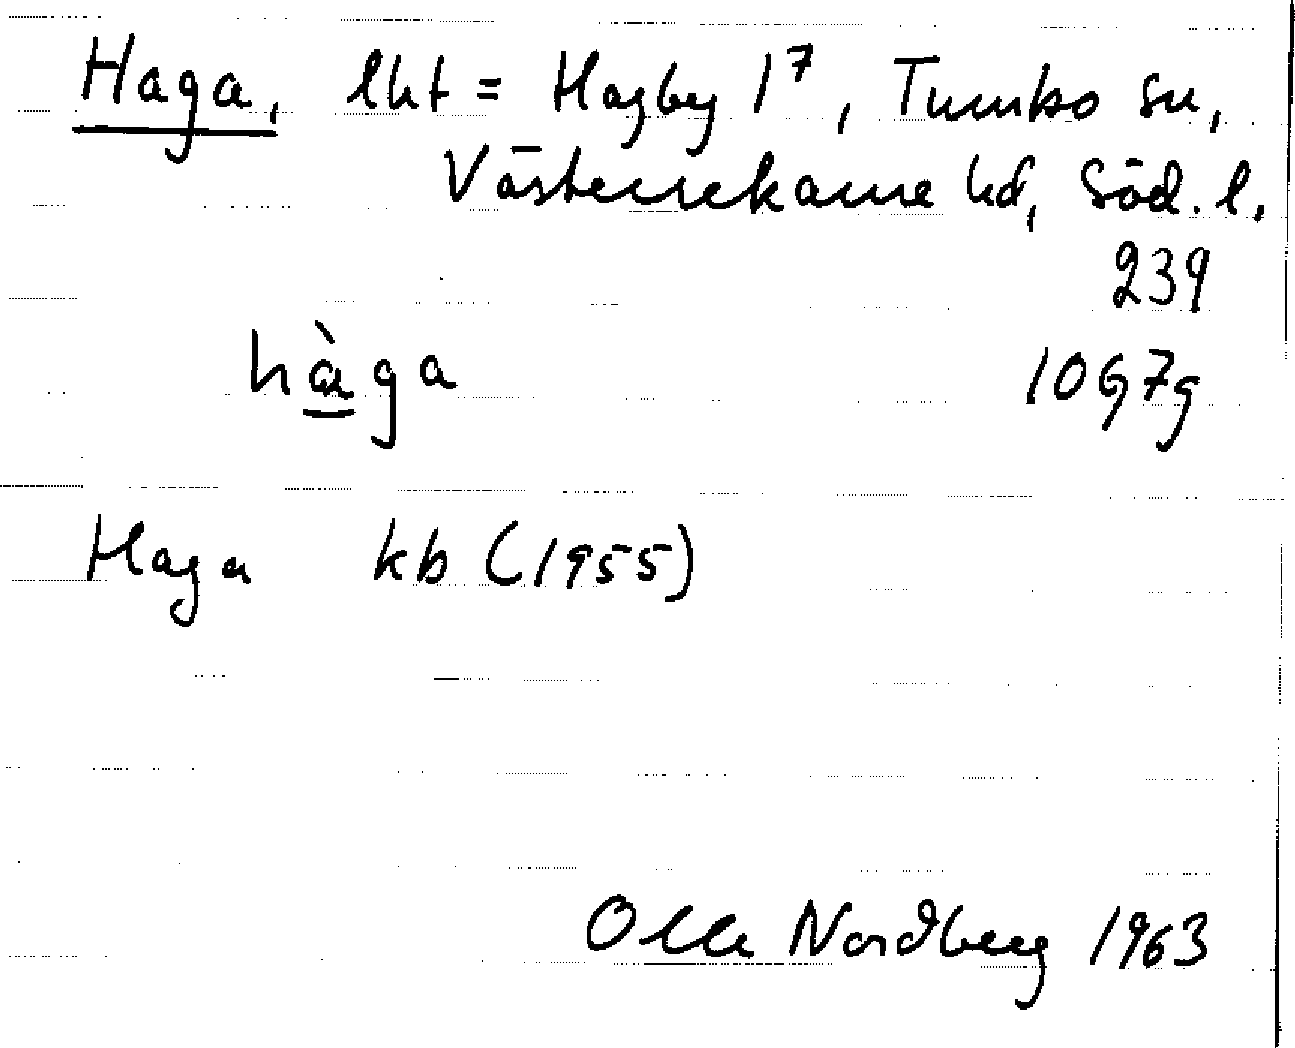 Haga, lht = Hagby 1⁷, Tumbo sn,
Västerrekarne hd, Söd. l.
239
hàga
10G7g
Haga kb (1955)
Olle Nordberg 1963